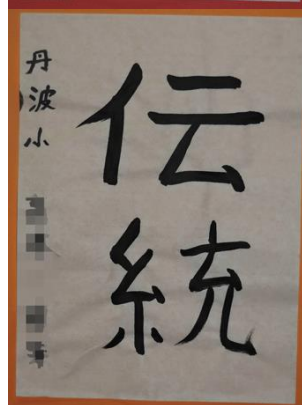 伝統
丹波小